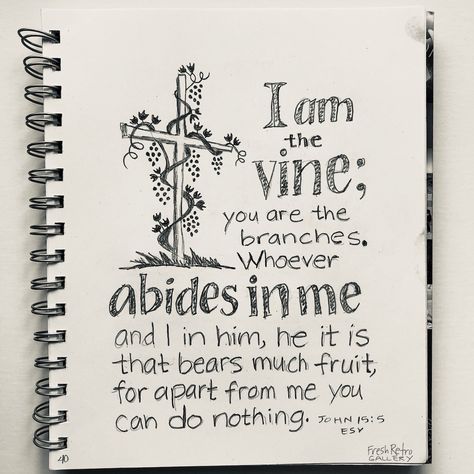 I am
the
vine;
you are the
branches.
Whoever
abides in me
and I in him, he it is
that bears much fruit,
for apart from me you
can do nothing. JOHN 15:5
ESV
Fresh Retro
GALLERY
40